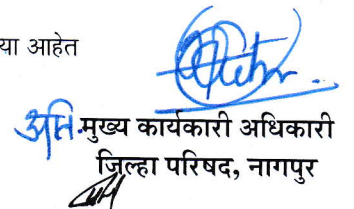 या आहेत
अति.मुख्य कार्यकारी अधिकारी
जिल्हा परिषद, नागपुर